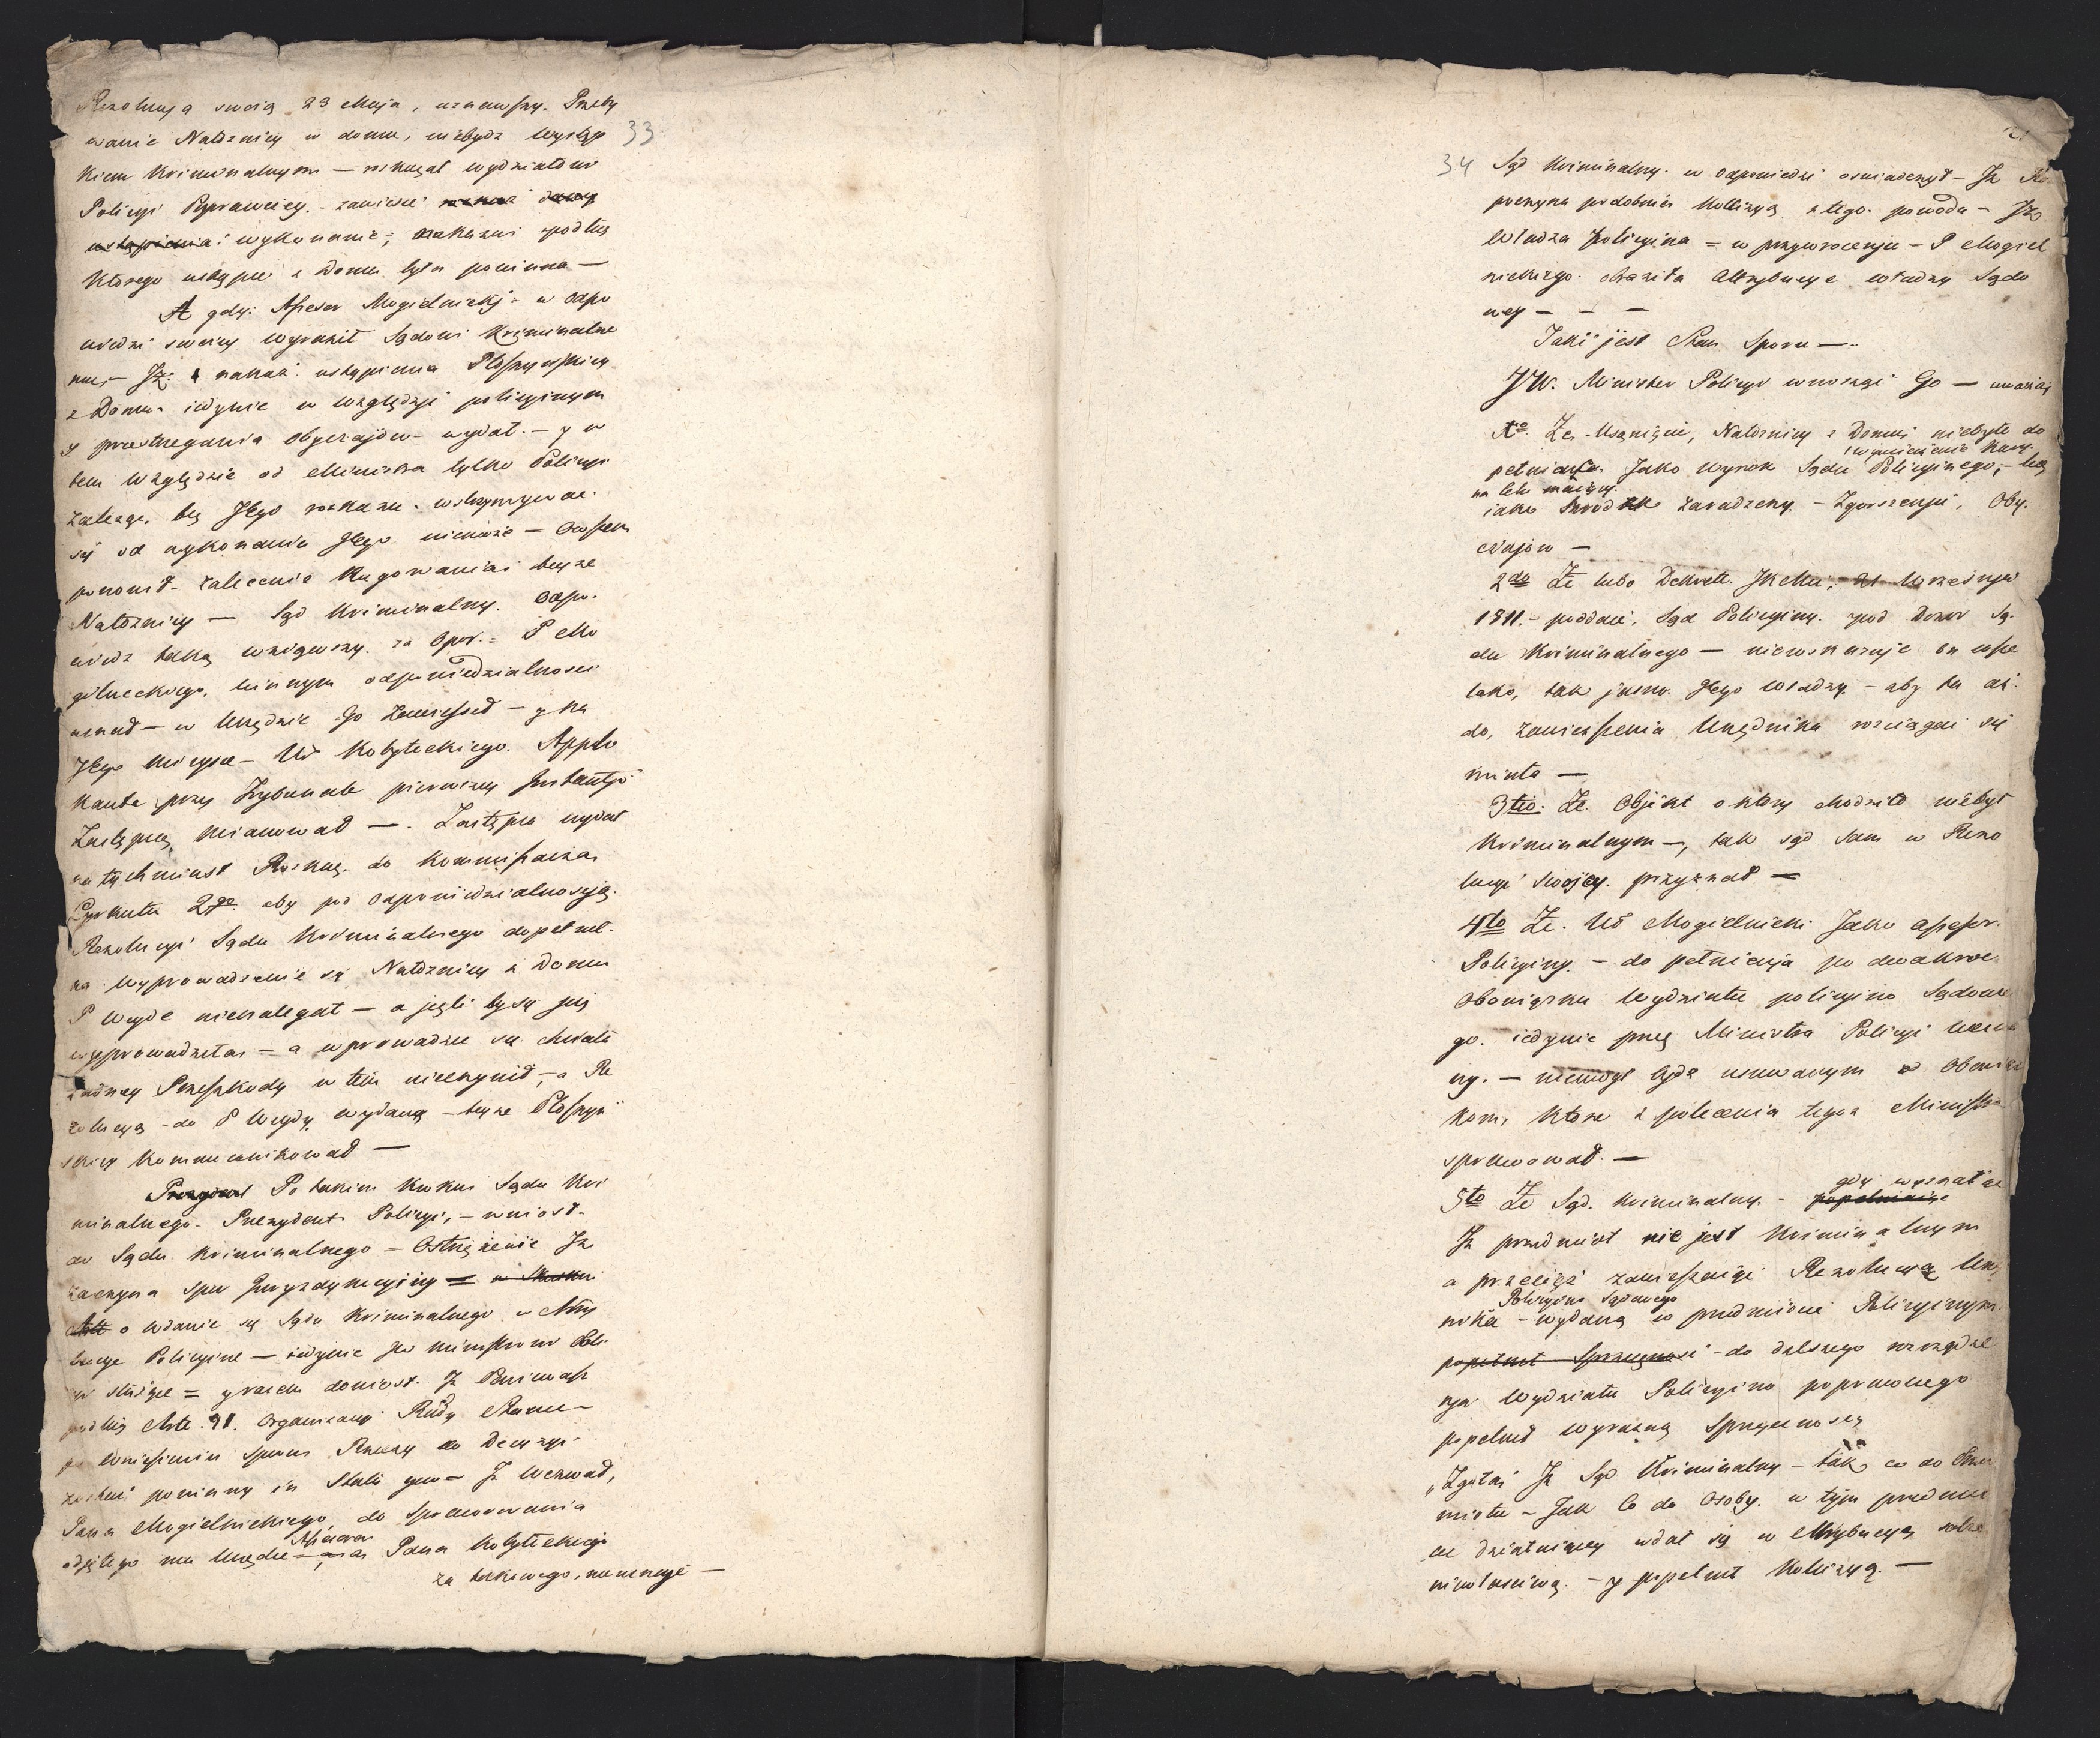 33
Rezolucyą swoią 23 Maja, uznawszy. Przeby
wanie Nałożnicy w domu, niebydz występ
kiem Kriminalnym — nakazał wydziałowi
Policyi Poprawczey. – zawiesić nakaz dany
ustąpienia i wykonanie, nakazui podług
Którego ustąpić z Domu była powinna —
A gdy: Assesor Mogielnicki – w odpo
wiedzi swoiey wyraził Sądowi Kriminalne
mu, – Iż: nakaz ustąpienia Płoszyńskiey
z Domu iedynie w względzie policyinym
y przestrzegania obyczajów – wydał. – y w
tem względzie od Ministra tylko Policyi
zależąc, bez Jego rozkazu. wstrzymywać
się od wykonania Jego niemoże – Owszem
ponowił. zalecenie Rugowania teyże
Nałożnicy — Sąd Kriminalny. odpo.
wiedz taką wziąwszy. za opor. = P Mo
gilnickiego, winnym odpowiedzialnosci
uznał – w Urzędzie Go zawiesił – y na
Jego mieysce – Ur Kobyłeckiego. Appli
kanta przy Trybunale pierwszey Instantyi
Zastępcą mianował —. Zastępca wydał
natychmiast Rozkaz. do Kommissarza
Cyrkułu 2go. aby pod odpowiedzialnoscyą.
Rezolucyi Sądu Kriminalnego dopełnił.
na wyprowadzenie się Nałożnicy z Domu
P Weyde nienalegał — a jeżli by się już
wyprowadziła – a wprowadzić się chciała
żadney Przeszkody w tem nieczynił, – a Re
zolucyą – do P Weydy wydaną – teyże Płoszyń
skiey Kommunikował —
Prezydent Po takim kroku Sądu Kri
minalnego – Prezydent Policyi, – wniosł.
do Sądu Kriminalnego – Ostrzeżenie Iż
zaczyna Spor Juryzdykcyiny = w Skutku
Att o wdanie się Sądu Kriminalnego w Attry
bucye Policyine — iedynie JW ministrowi Poli
cyi służące = y razem doniosł. Iż Ponieważ
podług Arte. 91. Organizacyi Rady Stanu –
po wniesieniu Sporu Rzeczy do Decyzyi
zostać powinny in Statu quo – Iż wezwał,
Pana Mogielnickiego do sprawowania
odjętego mu Urzędu Assesora – Pana Kobyłeckiego
za takowego, nieuznaje —
34
Sąd Kriminalny. w odpowiedzi oswiadczył – Iż Ro
poczyna podobnież Kollizyą z tego. powodu – Iż
Władza Policyina – w przywroceniu – P Mogiel
nickiego. obraziła Attrybucye władzy Sądo
wey — — —
Jaki jest Stan Sporu —.
JW. Minister Policyi wnoszi Go — uważaiąc
1o. Że – Usunięcie, Nałożnicy z Domu niebyło do
pełnione. Jako wyrok Sądu Policyinego, – (wymierzenie Kary
na celu maiący) lecz
iako srodek zaradzczy – Zgorszeniu, Oby.
czajow —
2do Że lubo Dekrett. JKMci, 21 Wrzesnia
1811. – poddaie, Sąd Policyiny. pod Dozor Są.
du Kriminalnego — niewskazuje on wsze
lako, tak jasno. Jego władzy – aby ta aż
do, zawieszenia Urzędnika rozciągać się
miała —
3tio. Że. Objekt o ktory chodziło niebył
Kriminalnym —, tak sąd sam w Rezo
lucyi swojey. przyznał —
4to Że. Ur Mogielnicki Jako assesor.
Policyiny. – do pełnienia po dwakroć
Obowiązku Wydziału policyino Sądowe
go. iedynie przez Ministra Policyi wezwa
ny. — niemogł bydź usuwanym od Obowiąz
kom, ktore z polecenia tegoż Ministra
sprawował. —
5to Że Sąd. Kriminalny. – popełniaiąc gdy uznał że
Iż przedmiot nie jest Kriminalnym
a przecież zawieszaiąc Rezolucyą Urzęd
nika Policyino Sądowego – wydaną w przedmiocie Policyinym.
popełnił Sprzecznosć – do dalszego rozrządze
nia Wydziału Policyino poprawczego
popełnił wyrazną Sprzecznosć
„Zgoła; Iż Sąd Kriminalny – tak co do Przed
miotu – Jak Co do Osoby. w tym przedmio
cie działaiącey wdał się w Attrybucyą sobie
niewłasciwą. – y popełnił Kolizyą. —